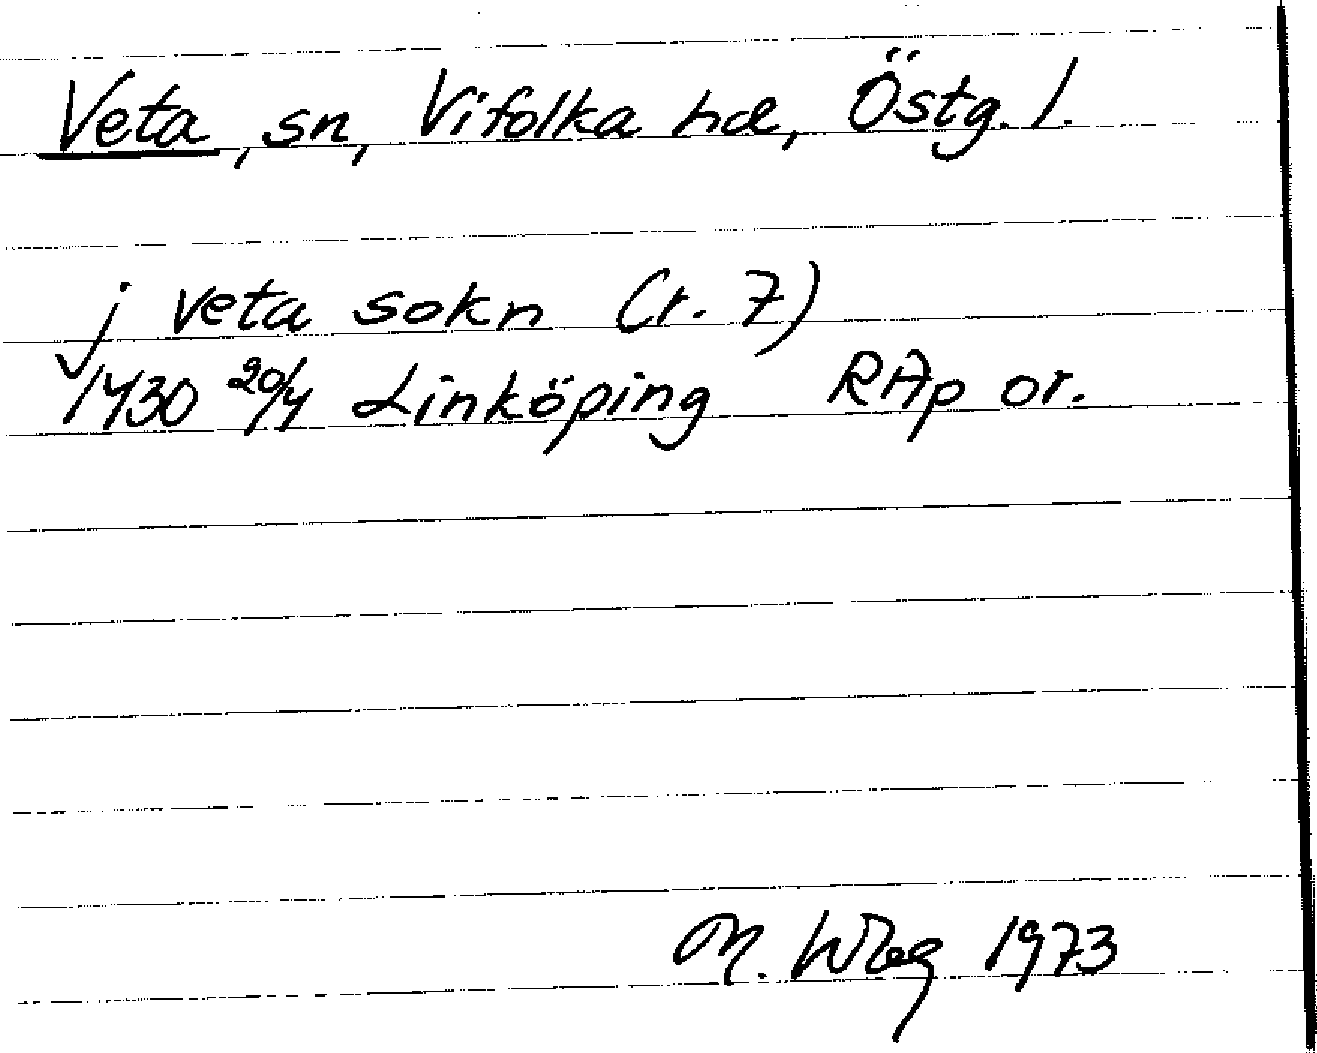 Veta, sn, Vifolka hd, Östg. l.
j veta sokn (r. 7)
1430 20/4 Linköping RAp or.
M. 1973